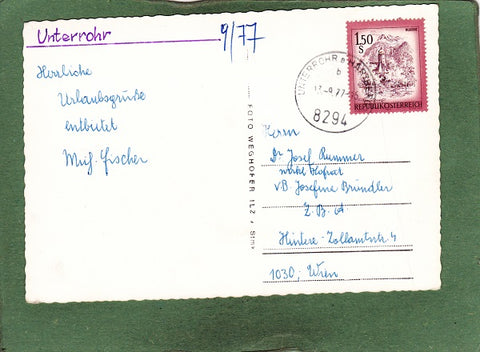 Unterrohr
9/77
Herrliche
Urlaubsgrüße
entbietet
Fischer
FOTO WEGHOFER ILZ, Stmk
1.50
S
REPUBLIK ÖSTERREICH
UNTERROHR b HARTBERG
b
13.-9.77
8294
Herrn
Dr Josef Rummer
wirkl. Hofrat
v.B. Josefine Bründler
Z. B. A
Hintere-Zollamtstr. 4
1030, Wien